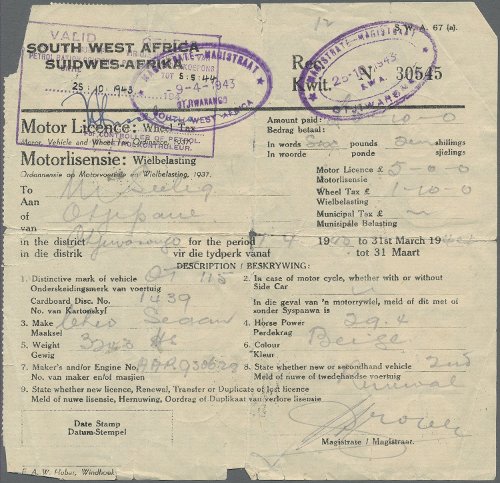 12
S. W. A. 67 (a).
VALID
SOUTH WEST AFRICA
SUIDWES-AFRIKA
25.10.1943
5.5.44
MAGISTRATE-MAGISTRAAT
9-4-1943
OTJIWARONGO
SOUTH WEST AFRICA
MAGISTRATE-MAGISTRAAT
25-10-1943
S.W.A.
OTJIWARONGO
Rec.
Kwit. Nº 30545
CONTROLLER OF PETROL.
PETROLKONTROLEUR.
Motor Licence: Wheel Tax
Motor, Vehicle and Wheel Tax Ordinance, 1937.
Motorlisensie: Wielbelasting
Ordonnansie op Motorvoertuie en Wielbelasting, 1937.
Amount paid: 10-0
Bedrag betaal:
In words pounds shillings
In woorde ponde sjielings
Motor Licence £ 5-0-0
Motorlisensie
Wheel Tax £ 1-10-0
Wielbelasting
Municipal Tax £ —
Munisipale Belasting
To
Aan
of
van
in the district Otjiwarongo for the period 1-4 19 to 31st March 19
in die distrik vir die tydperk vanaf tot 31 Maart
DESCRIPTION / BESKRYWING:
1. Distinctive mark of vehicle 115
Onderskeidingsmerk van voertuig
Cardboard Disc. No. 1439
No. van Kartonskyf
2. In case of motor cycle, whether with or without
Side Car
In die geval van 'n motorrywiel, meld of dit met of
sonder Syspanwa is
3. Make Chev Sedan
Maaksel
4. Horse Power 29.4
Perdekrag
5. Weight 3243 lbs
Gewig
6. Colour Beige
Kleur
7. Maker's and/or Engine No.
No. van maker en/of masjien
8. State whether new or secondhand vehicle 2nd
Meld of nuwe of tweedehandse voertuig
9. State whether new licence, Renewal, Transfer or Duplicate of lost licence Renewal
Meld of nuwe lisensie, Hernuwing, Oordrag of Duplikaat van verlore lisensie
Date Stamp
Datum-Stempel
Magistrate / Magistraat.
E. A. W. Huber, Windhoek